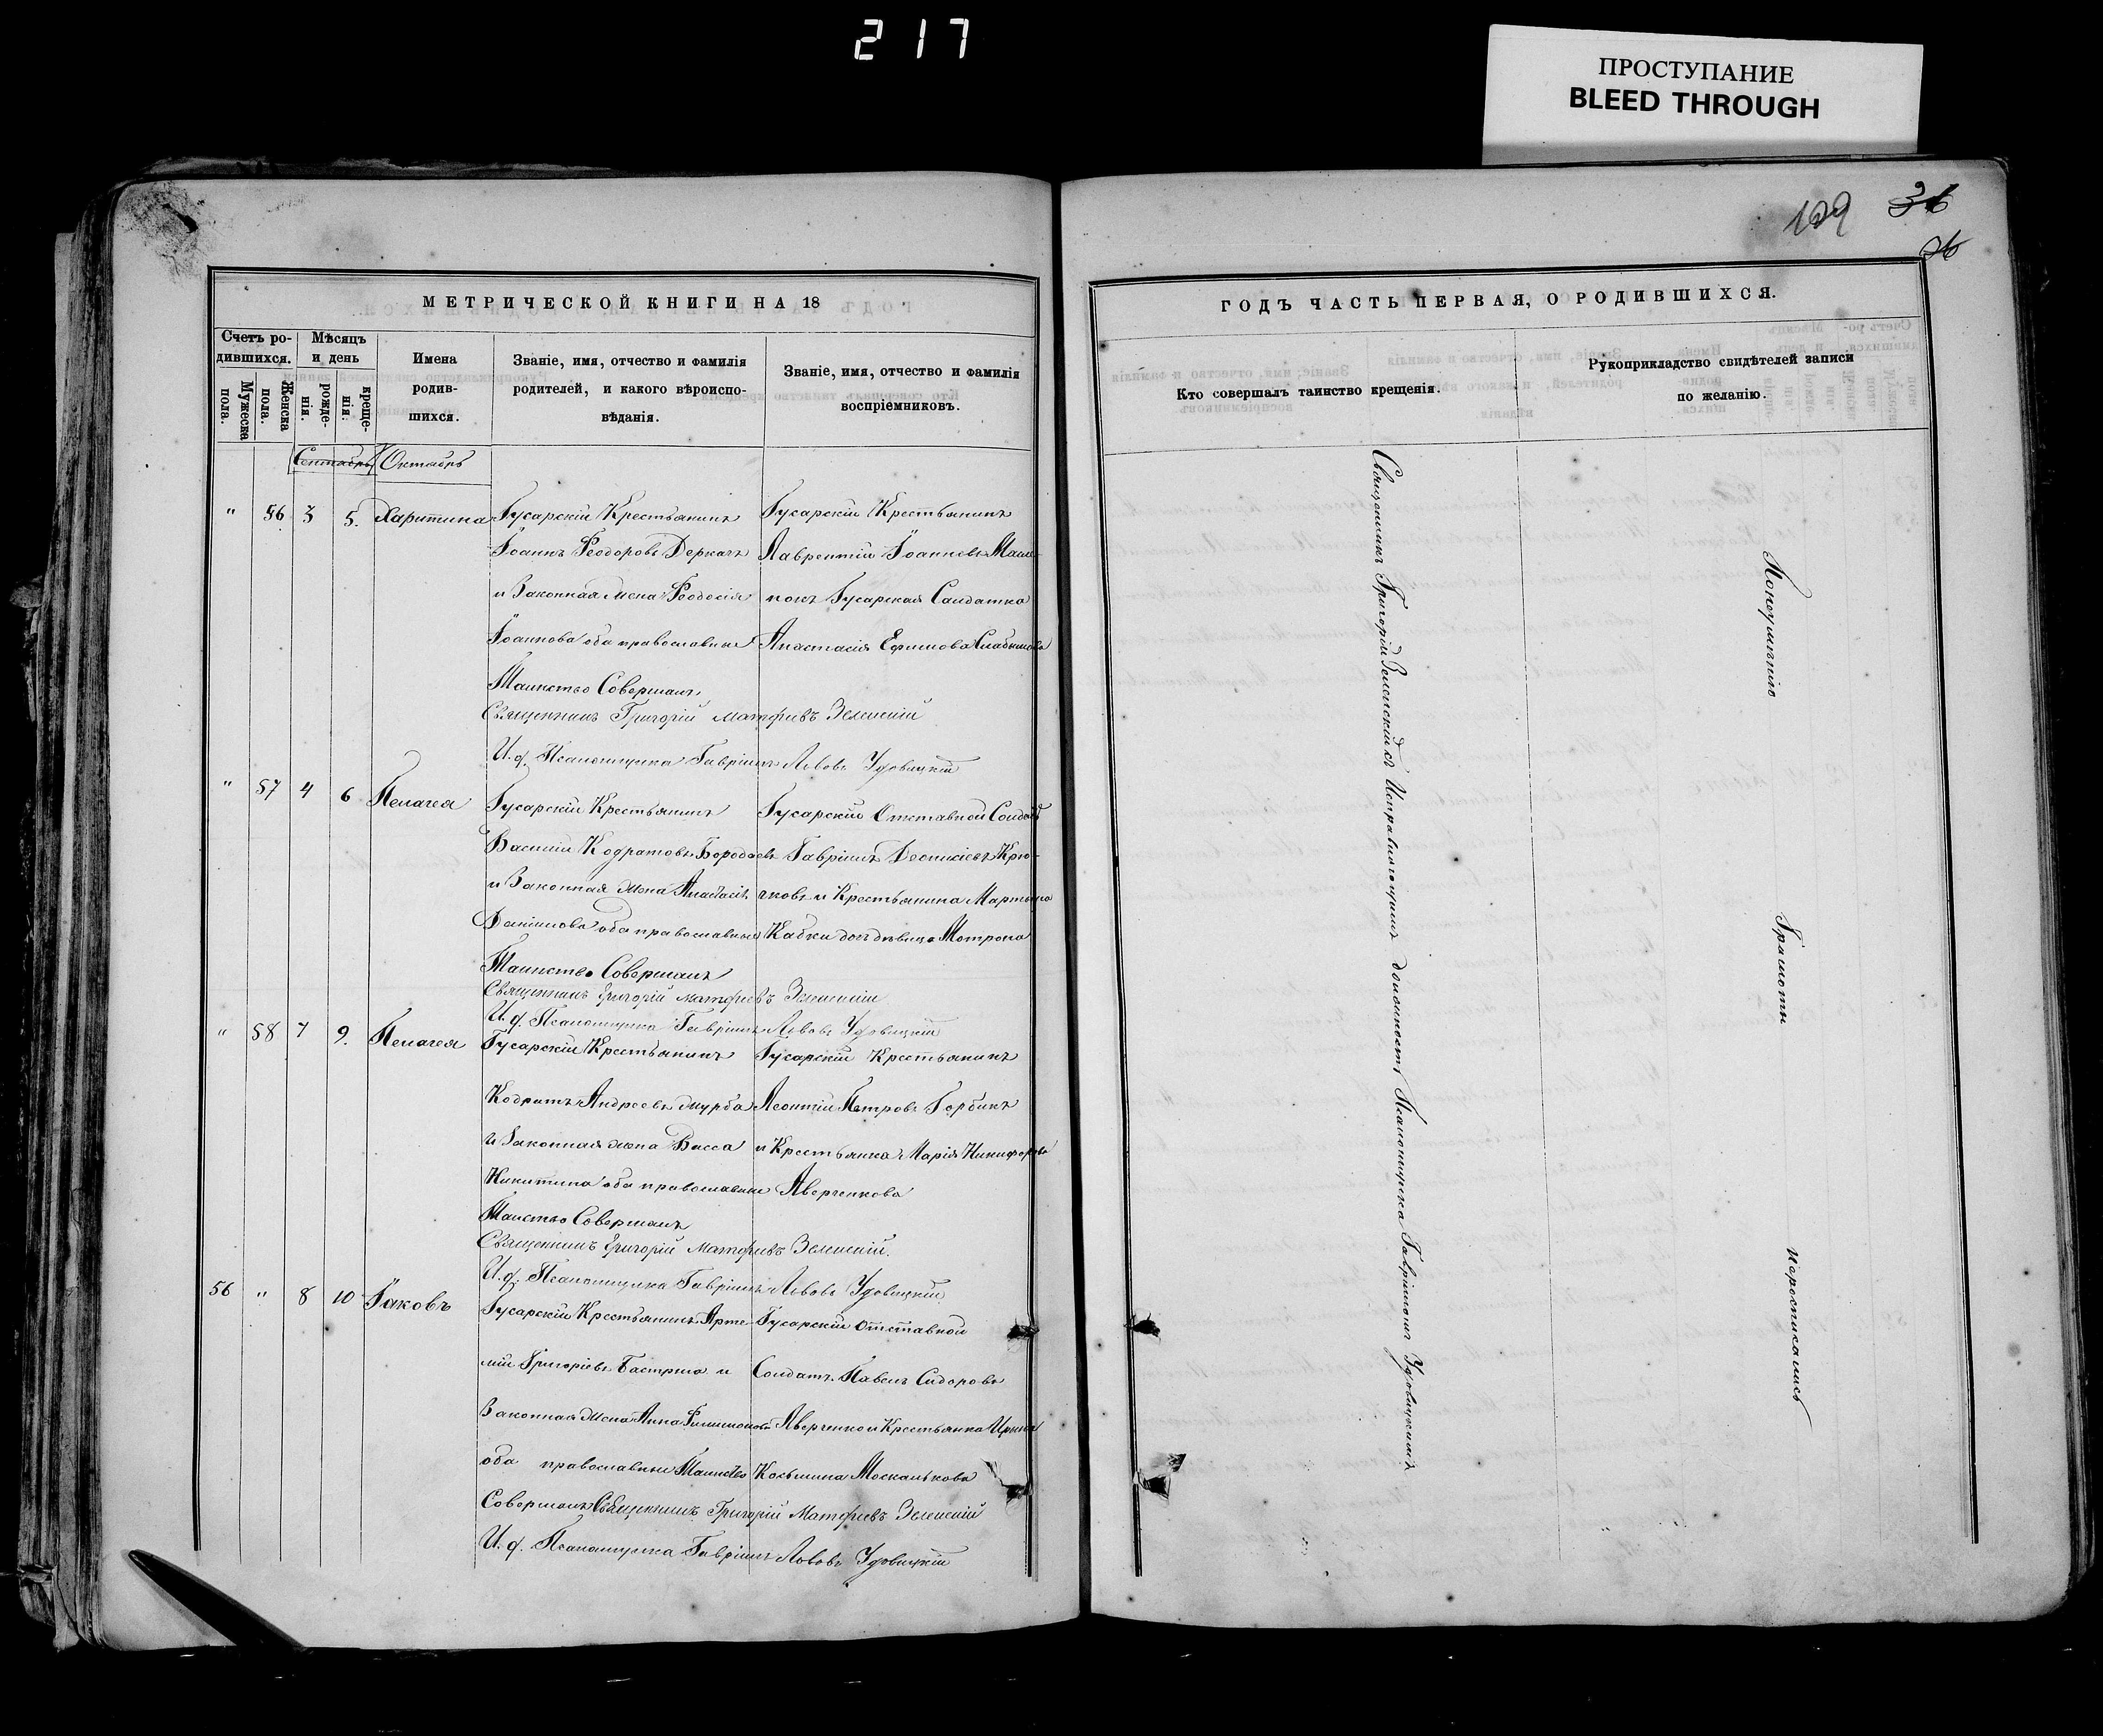 217
ПРОСТУПАНИЕ
BLEED THROUGH
109 36
36
МЕТРИЧЕСКОЙ КНИГИ НА 18
Счетъ ро-
дившихся.
Мужеска
пола.
Женска
пола.
Мѣсяцъ
и день
рожде-
нія.
креще-
нія.
Имена
родив-
шихся.
Званіе, имя, отчество и фамилія
родителей, и какого вѣроиспо-
вѣданія.
Званіе, имя, отчество и фамилія
воспріемниковъ.
Сентябрь Октябрь
" 56 3 5. Харитина
Гусарскій Крестьянинъ
Іоаннъ Феодоровъ Деркачъ
и Законная Жена Феодосія
Іоаннова оба православные
Гусарскій Крестьянинъ
Лаврентій Іоанновъ
Гусарская Салдатка
Анастасія Ефимова
Таинство Совершалъ
Священникъ Григорій Матфиевъ Зеленскій
И. д. Псаломщика Гавріилъ Львовъ Удовицкій
" 57 4 6 Пелагея
Гусарскій Крестьянинъ
Василій Кодратовъ Бородаевъ
и Законная Жена Анастасія
Данилова оба православные
Гусарскій Отставной Солдатъ
Гавріилъ Деонисіевъ Крю-
чковъ и Крестьянина Мартына
Кабки дочь дѣвица Мотрона
Таинство Совершалъ
Священникъ Григорій Матфиевъ Зеленскій
И. д. Псаломщика Гавріилъ Львовъ Удовицкій
" 58 7 9. Пелагея
Гусарскій Крестьянинъ
Кодратъ Андреевъ Журба
и Законная жена Васса
Никитина оба православные
Гусарскій Крестьянинъ
Леонтій Петровъ Горбикъ
и Крестьянка Марія Никифорова
Аверченкова
Таиство Совершалъ
Священникъ Григорій Матфиевъ Зеленскій.
И. д. Псаломщика Гавріилъ Львовъ Удовицкій
56 " 8 10 Іаковъ
Гусарскій Крестьянинъ Арте-
мій Григоріевъ и
Законная Жена Анна Филимонова
оба православные Таинство
Гусарскій Отставной
Солдатъ Павелъ Сидоровъ
Аверченко и Крестьянка Ирина
Косьмина Москалькова
Совершалъ Священникъ Григорій Матфиевъ Зеленскій
И. д. Псаломщика Гавріилъ Львовъ Удовицкій
ГОДЪ ЧАСТЬ ПЕРВАЯ, О РОДИВШИХСЯ.
Кто совершалъ таинство крещенія.
Рукоприкладство свидѣтелей записи
по желанію.
Священникъ Григорій Зеленскій съ Исправляющимъ должность Псаломщика Гавріиломъ Удовицкимъ
Понеумѣнію Грамоты неросписались